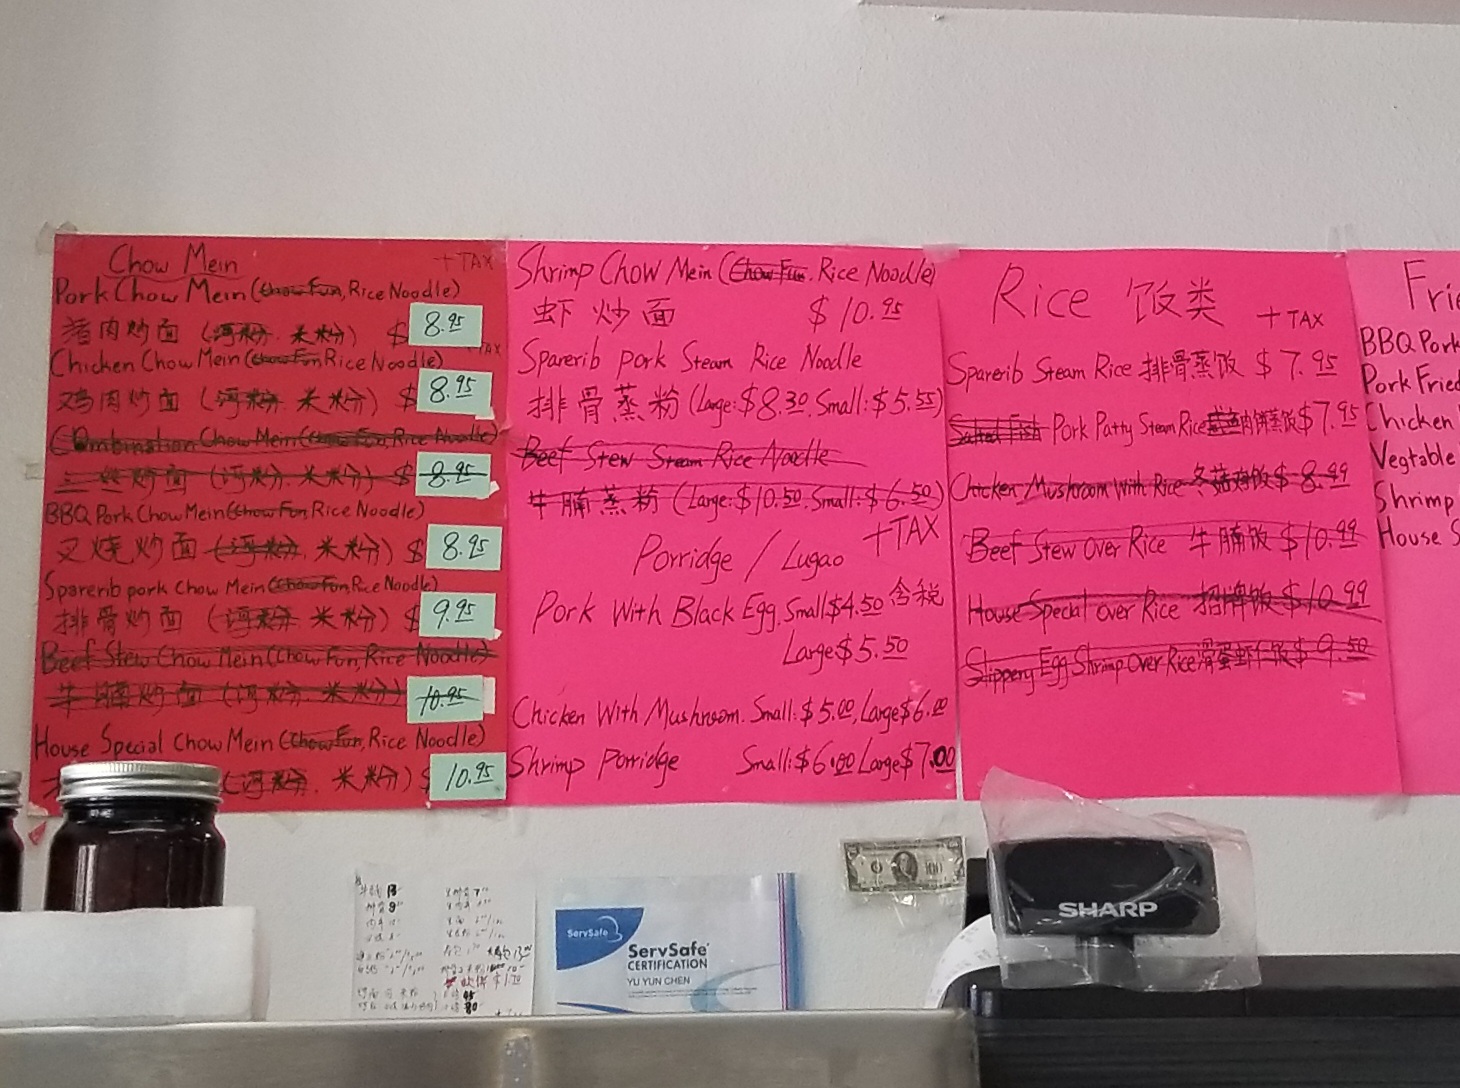 Chow Mein + TAX
Pork Chow Mein (Chow Fun, Rice Noodle)
猪肉炒面 (河粉. 米粉) $ 8.95
Chicken Chow Mein (Chow Fun Rice Noodle)
鸡肉炒面 (河粉. 米粉) $ 8.95
Combination Chow Mein (Chow Fun, Rice Noodle)
三丝炒面 (河粉. 米粉) $ 8.95
BBQ Pork Chow Mein (Chow Fun Rice Noodle)
叉烧炒面 (河粉. 米粉) $ 8.95
Sparerib pork Chow Mein (Chow Fun, Rice Noodle)
排骨炒面 (河粉. 米粉) $ 9.95
Beef Stew Chow Mein (Chow Fun, Rice Noodle)
牛腩炒面 (河粉. 米粉) 10.95
House Special Chow Mein (Chow Fun, Rice Noodle)
(河粉. 米粉) $ 10.95
Shrimp Chow Mein (Chow Fun. Rice Noodle)
虾炒面 $ 10.95
Sparerib pork Steam Rice Noodle
排骨蒸粉 (Large: $8.30. Small: $5.55)
Beef Stew Steam Rice Noodle
牛腩蒸粉 (Large: $10.50. Small: $6.50)
+ TAX
Porridge / Lugao
Pork With Black Egg. Small $4.50 含税
Large $5.50
Chicken With Mushroom. Small: $5.00, Large $6.00
Shrimp Porridge Small: $6.00 Large $7.00
Rice 饭类 + TAX
Sparerib Steam Rice 排骨蒸饭 $ 7.95
Salted Fish Pork Patty Steam Rice 咸鱼肉饼蒸饭 $7.95
Chicken Mushroom With Rice 冬菇鸡饭 $ 8.99
Beef Stew Over Rice 牛腩饭 $10.99
House Special over Rice 招牌饭 $10.99
Slippery Egg Shrimp Over Rice 滑蛋虾仁饭 $ 9.50
BBQ Pork
Pork Fried
Chicken
Vegtable
Shrimp
House
ServSafe
ServSafe
CERTIFICATION
YU YUN CHEN
100
SHARP